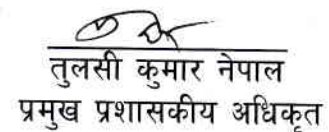 तुलसी कुमार नेपाल
प्रमुख प्रशासकीय अधिकृत